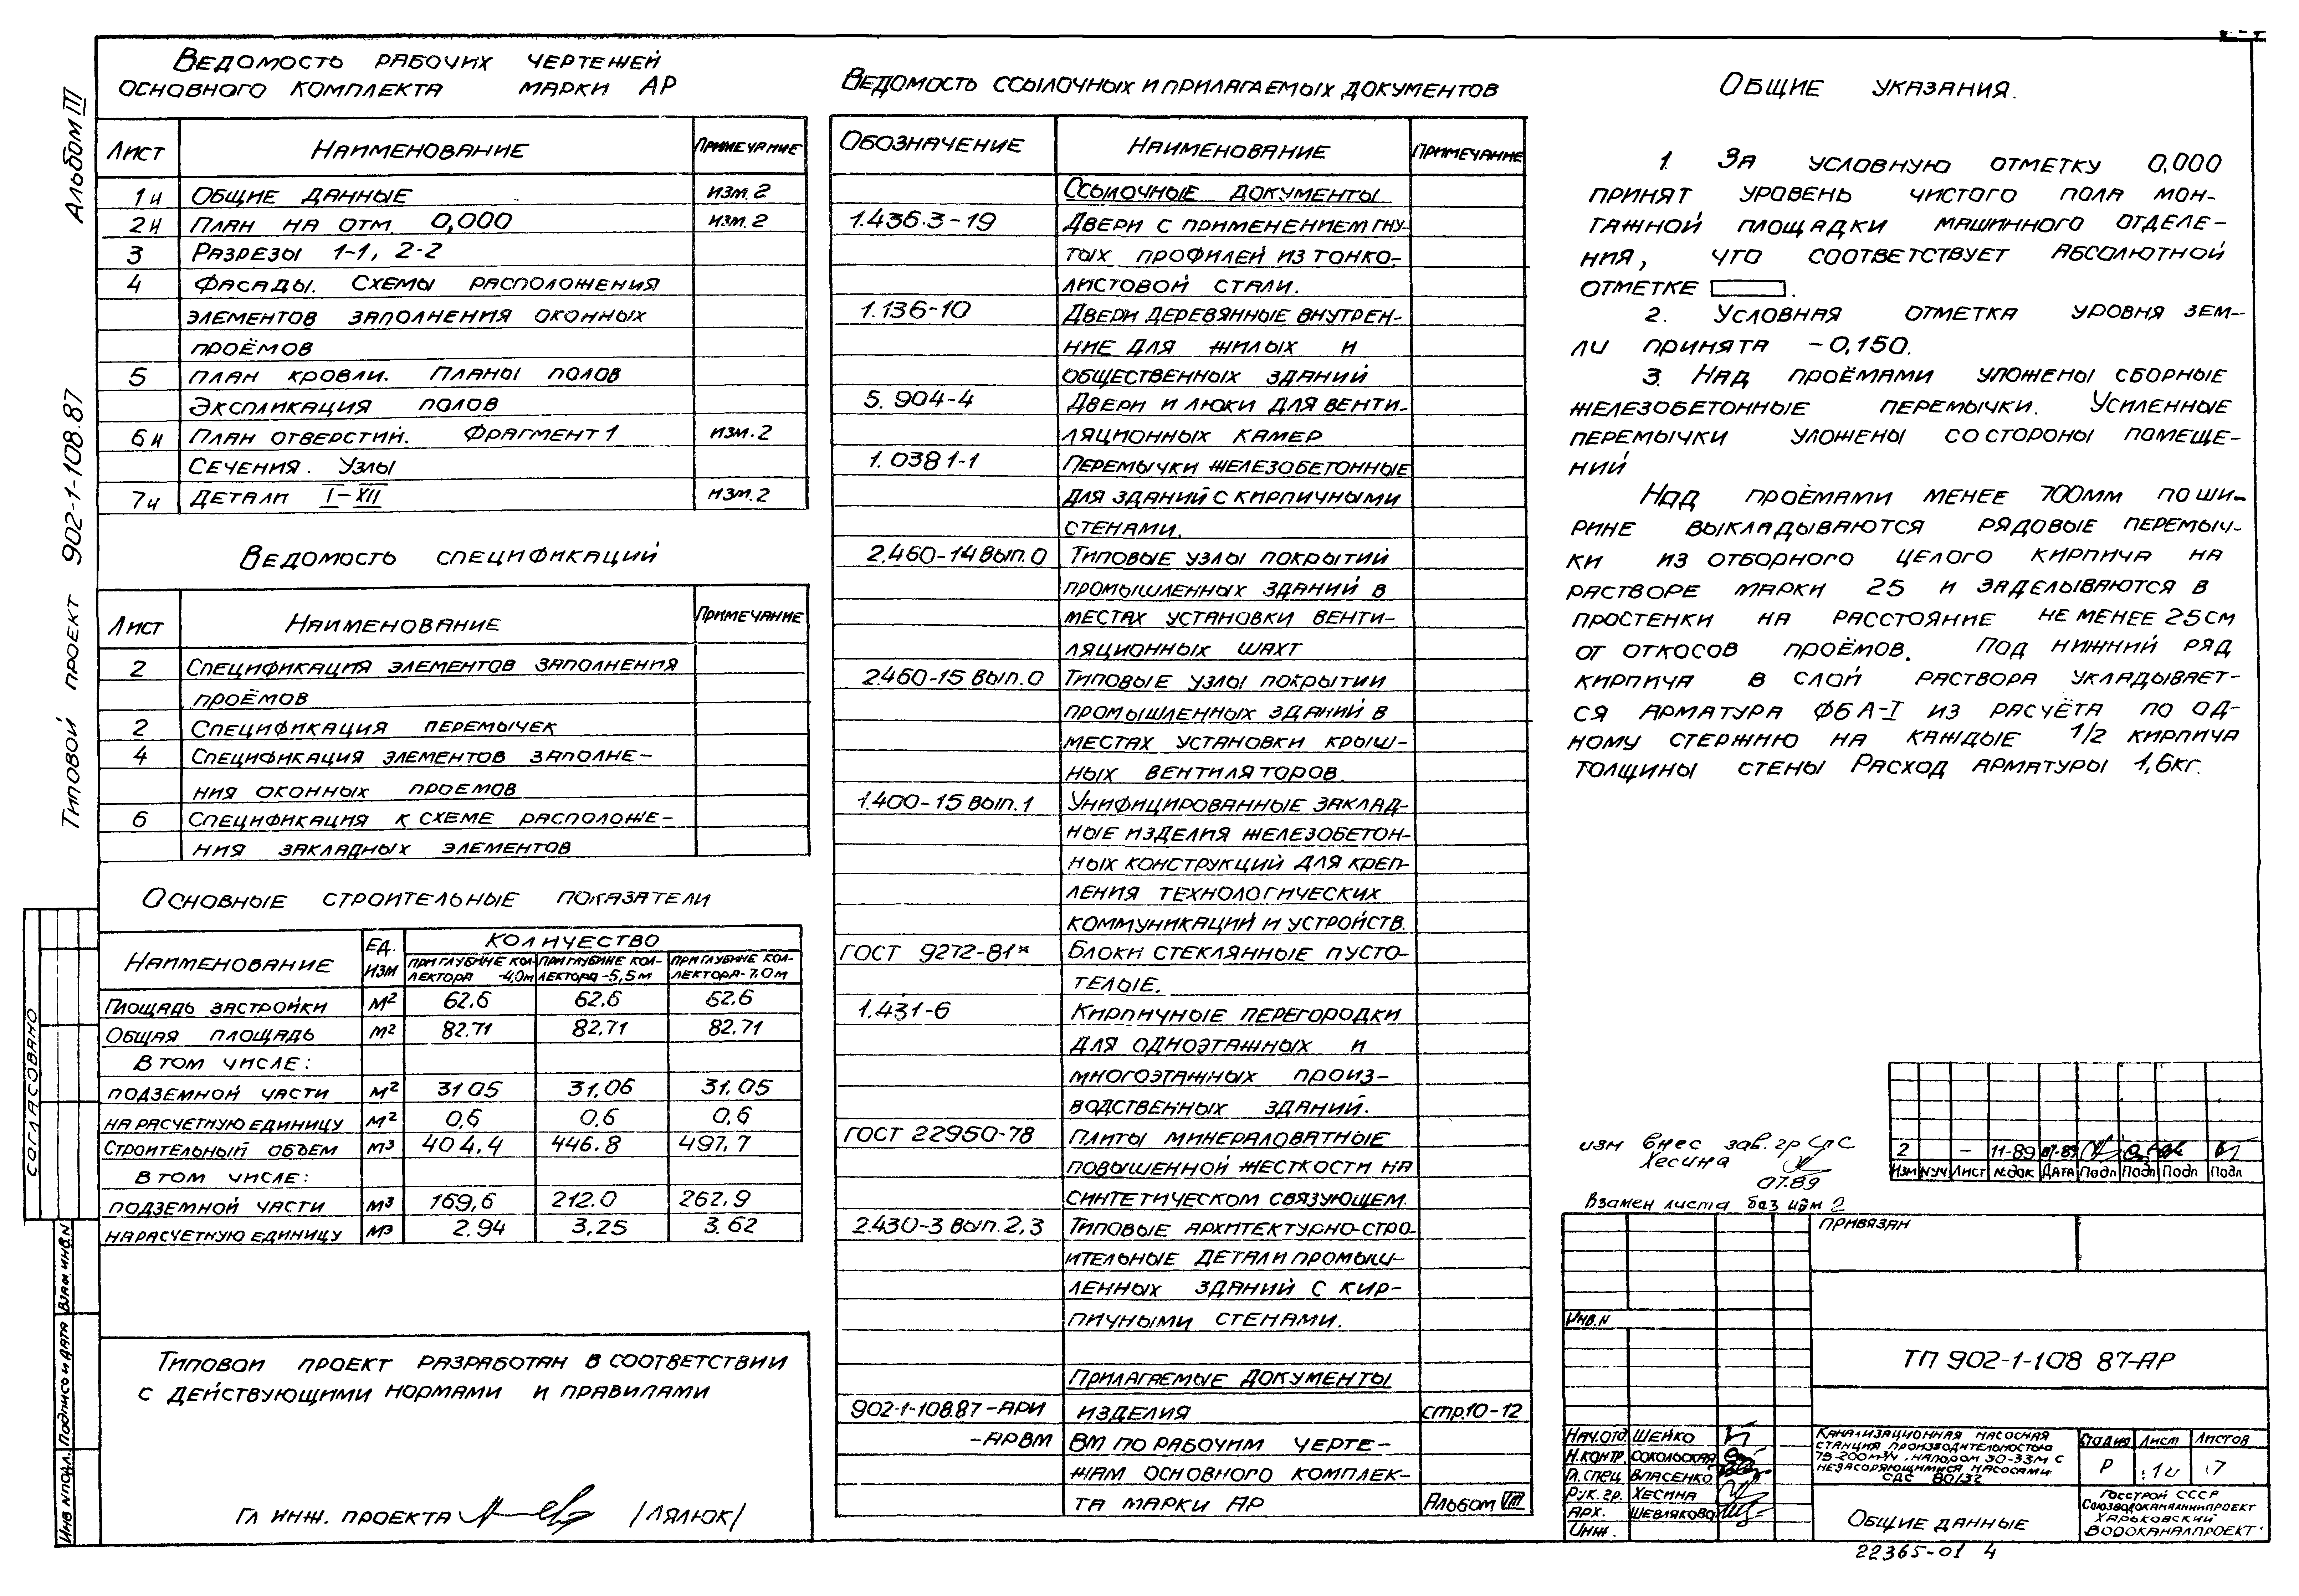 Альбом III
Типовой проект 902-1-108.87
Ведомость рабочих чертежей
основного комплекта марки АР
Лист Наименование Примечание
1и Общие данные изм.2
2и План на отм. 0,000 изм.2
3 Разрезы 1-1, 2-2
4 Фасады. Схемы расположения
элементов заполнения оконных
проёмов
5 План кровли. Планы полов
Экспликация полов
6и План отверстий. Фрагмент 1 изм.2
Сечения. Узлы
7и Детали I-XII изм.2
Ведомость спецификаций
Лист Наименование Примечание
2 Спецификация элементов заполнения
проёмов
2 Спецификация перемычек
4 Спецификация элементов заполне-
ния оконных проемов
6 Спецификация к схеме расположе-
ния закладных элементов
Основные строительные показатели
Наименование Ед. изм Количество
при глубине коллектора -4,0м при глубине коллектора -5,5м при глубине коллектора -7,0м
Площадь застройки м² 62.6 62.6 62.6
Общая площадь м² 82.71 82.71 82.71
в том числе:
подземной части м² 31 05 31,06 31.05
на расчетную единицу м² 0,6 0,6 0,6
Строительный объем м³ 404,4 446.8 497.7
в том числе:
подземной части м³ 169,6 212.0 262,9
на расчетную единицу м³ 2.94 3,25 3.62
Типовой проект разработан в соответствии
с действующими нормами и правилами
Гл инж. проекта /Лялюк/
Ведомость ссылочных и прилагаемых документов
Обозначение Наименование Примечание
Ссылочные документы
1.436.3-19 Двери с применением гну-
тых профилей из тонко-
листовой стали.
1.136-10 Двери деревянные внутрен-
ние для жилых и
общественных зданий
5.904-4 Двери и люки для венти-
ляционных камер
1.038 1-1 Перемычки железобетонные
для зданий с кирпичными
стенами.
2.460-14 вып.0 Типовые узлы покрытий
промышленных зданий в
местах установки венти-
ляционных шахт
2.460-15 вып.0 Типовые узлы покрытии
промышленных зданий в
местах установки крыш-
ных вентиляторов.
1.400-15 вып.1 Унифицированные заклад-
ные изделия железобетон-
ных конструкций для креп-
ления технологических
коммуникаций и устройств.
ГОСТ 9272-81* Блоки стеклянные пусто-
телые.
1.431-6 Кирпичные перегородки
для одноэтажных и
многоэтажных произ-
водственных зданий.
ГОСТ 22950-78 Плиты минераловатные
повышенной жесткости на
синтетическом связующем.
2.430-3 вып.2,3 Типовые архитектурно-стро-
ительные детали промыш-
ленных зданий с кир-
пичными стенами.
Прилагаемые документы
902-1-108.87-АРИ изделия стр.10-12
-АРВМ ВМ по рабочим черте-
жам основного комплек-
та марки АР Альбом VIII
Общие указания.
1. За условную отметку 0,000
принят уровень чистого пола мон-
тажной площадки машинного отделе-
ния, что соответствует абсолютной
отметке .
2. Условная отметка уровня зем-
ли принята -0,150.
3. Над проёмами уложены сборные
железобетонные перемычки. Усиленные
перемычки уложены со стороны помеще-
ний
Над проёмами менее 700мм по ши-
рине выкладываются рядовые перемыч-
ки из отборного целого кирпича на
растворе марки 25 и заделываются в
простенки на расстояние не менее 25см
от откосов проёмов. Под нижний ряд
кирпича в слой раствора укладывает-
ся арматура ф6 А-I из расчёта по од-
ному стержню на каждые 1/2 кирпича
толщины стены Расход арматуры 1,6кг.
изм внес зав.гр СРС
Хесина
07.89
Взамен листа без изм 2
2 - 11-89 07-89
Изм №уч Лист №док Дата Подп Подп Подп Подп
Привязан
Инв.N
ТП 902-1-108 87-АР
Нач.отд Шейко
Н.контр. Сокольская
Гл.спец Власенко
Рук.гр. Хесина
Арх. Шевлякова
Инж.
Канализационная насосная
станция производительностью
75-200м³/ч, напором 30-33м с
незасоряющимися насосами
СДС 80/32
Стадия Лист Листов
Р 1и 7
Общие данные
Госстрой СССР
Союзводоканалниипроект
Харьковский
Водоканалпроект
22365-01 4
Согласовано
Взам инв.N
Подпись и дата
Инв N подл.